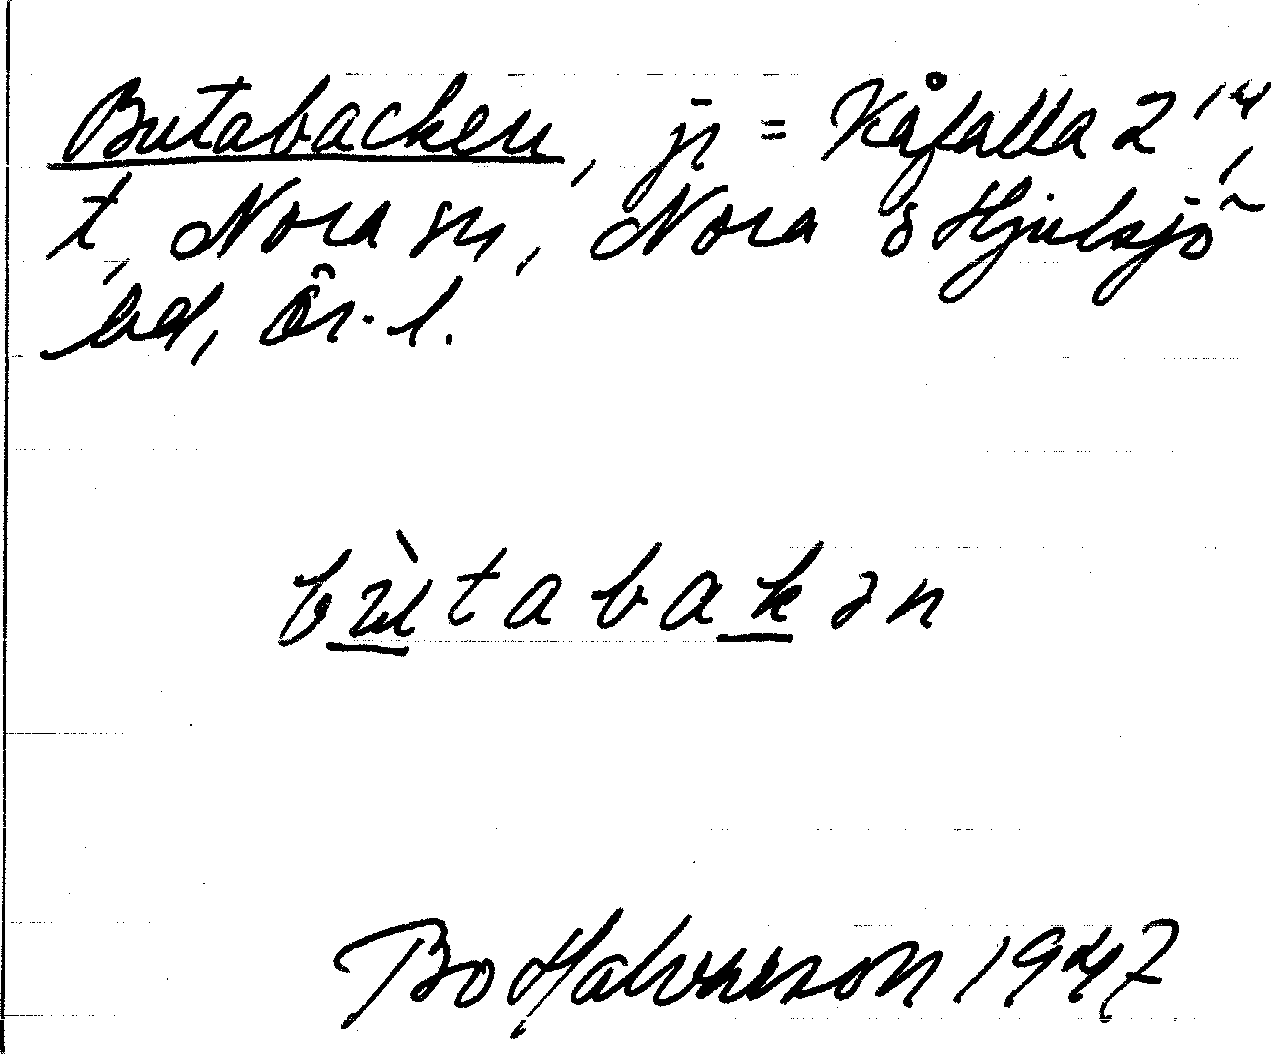 Butabacken, jr = Kåfalla 2¹⁴,
t, Nora sn, Nora o Hjulsjö
bd, Ör. l.
bù̲tabak̲ən
Bo Halvarson 1947